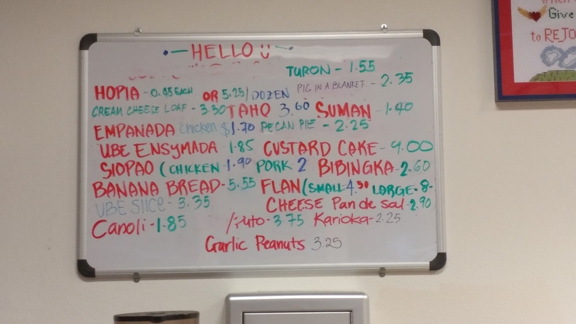 HELLO
TURON - 1.55
HOPIA - 0.55 EACH OR 5.25/DOZEN PIG IN A BLANKET - 2.35
CREAM CHEESE LOAF - 3.50 TAHO 3.60 SUMAN - 1.40
EMPANADA Chicken $1.70 PECAN PIE - 2.25
UBE ENSYMADA 1.85 CUSTARD CAKE - 9.00
SIOPAO (CHICKEN 1.90 PORK 2 BIBINGKA - 2.60
BANANA BREAD - 5.55 FLAN (SMALL 4.50 LARGE - 8-
UBE SLICE - 3.35 CHEESE Pan de sal 2.90
Canoli - 1.85 /Puto - 3.75 Karioka - 2.25
Garlic Peanuts 3.25
Give
to REJO